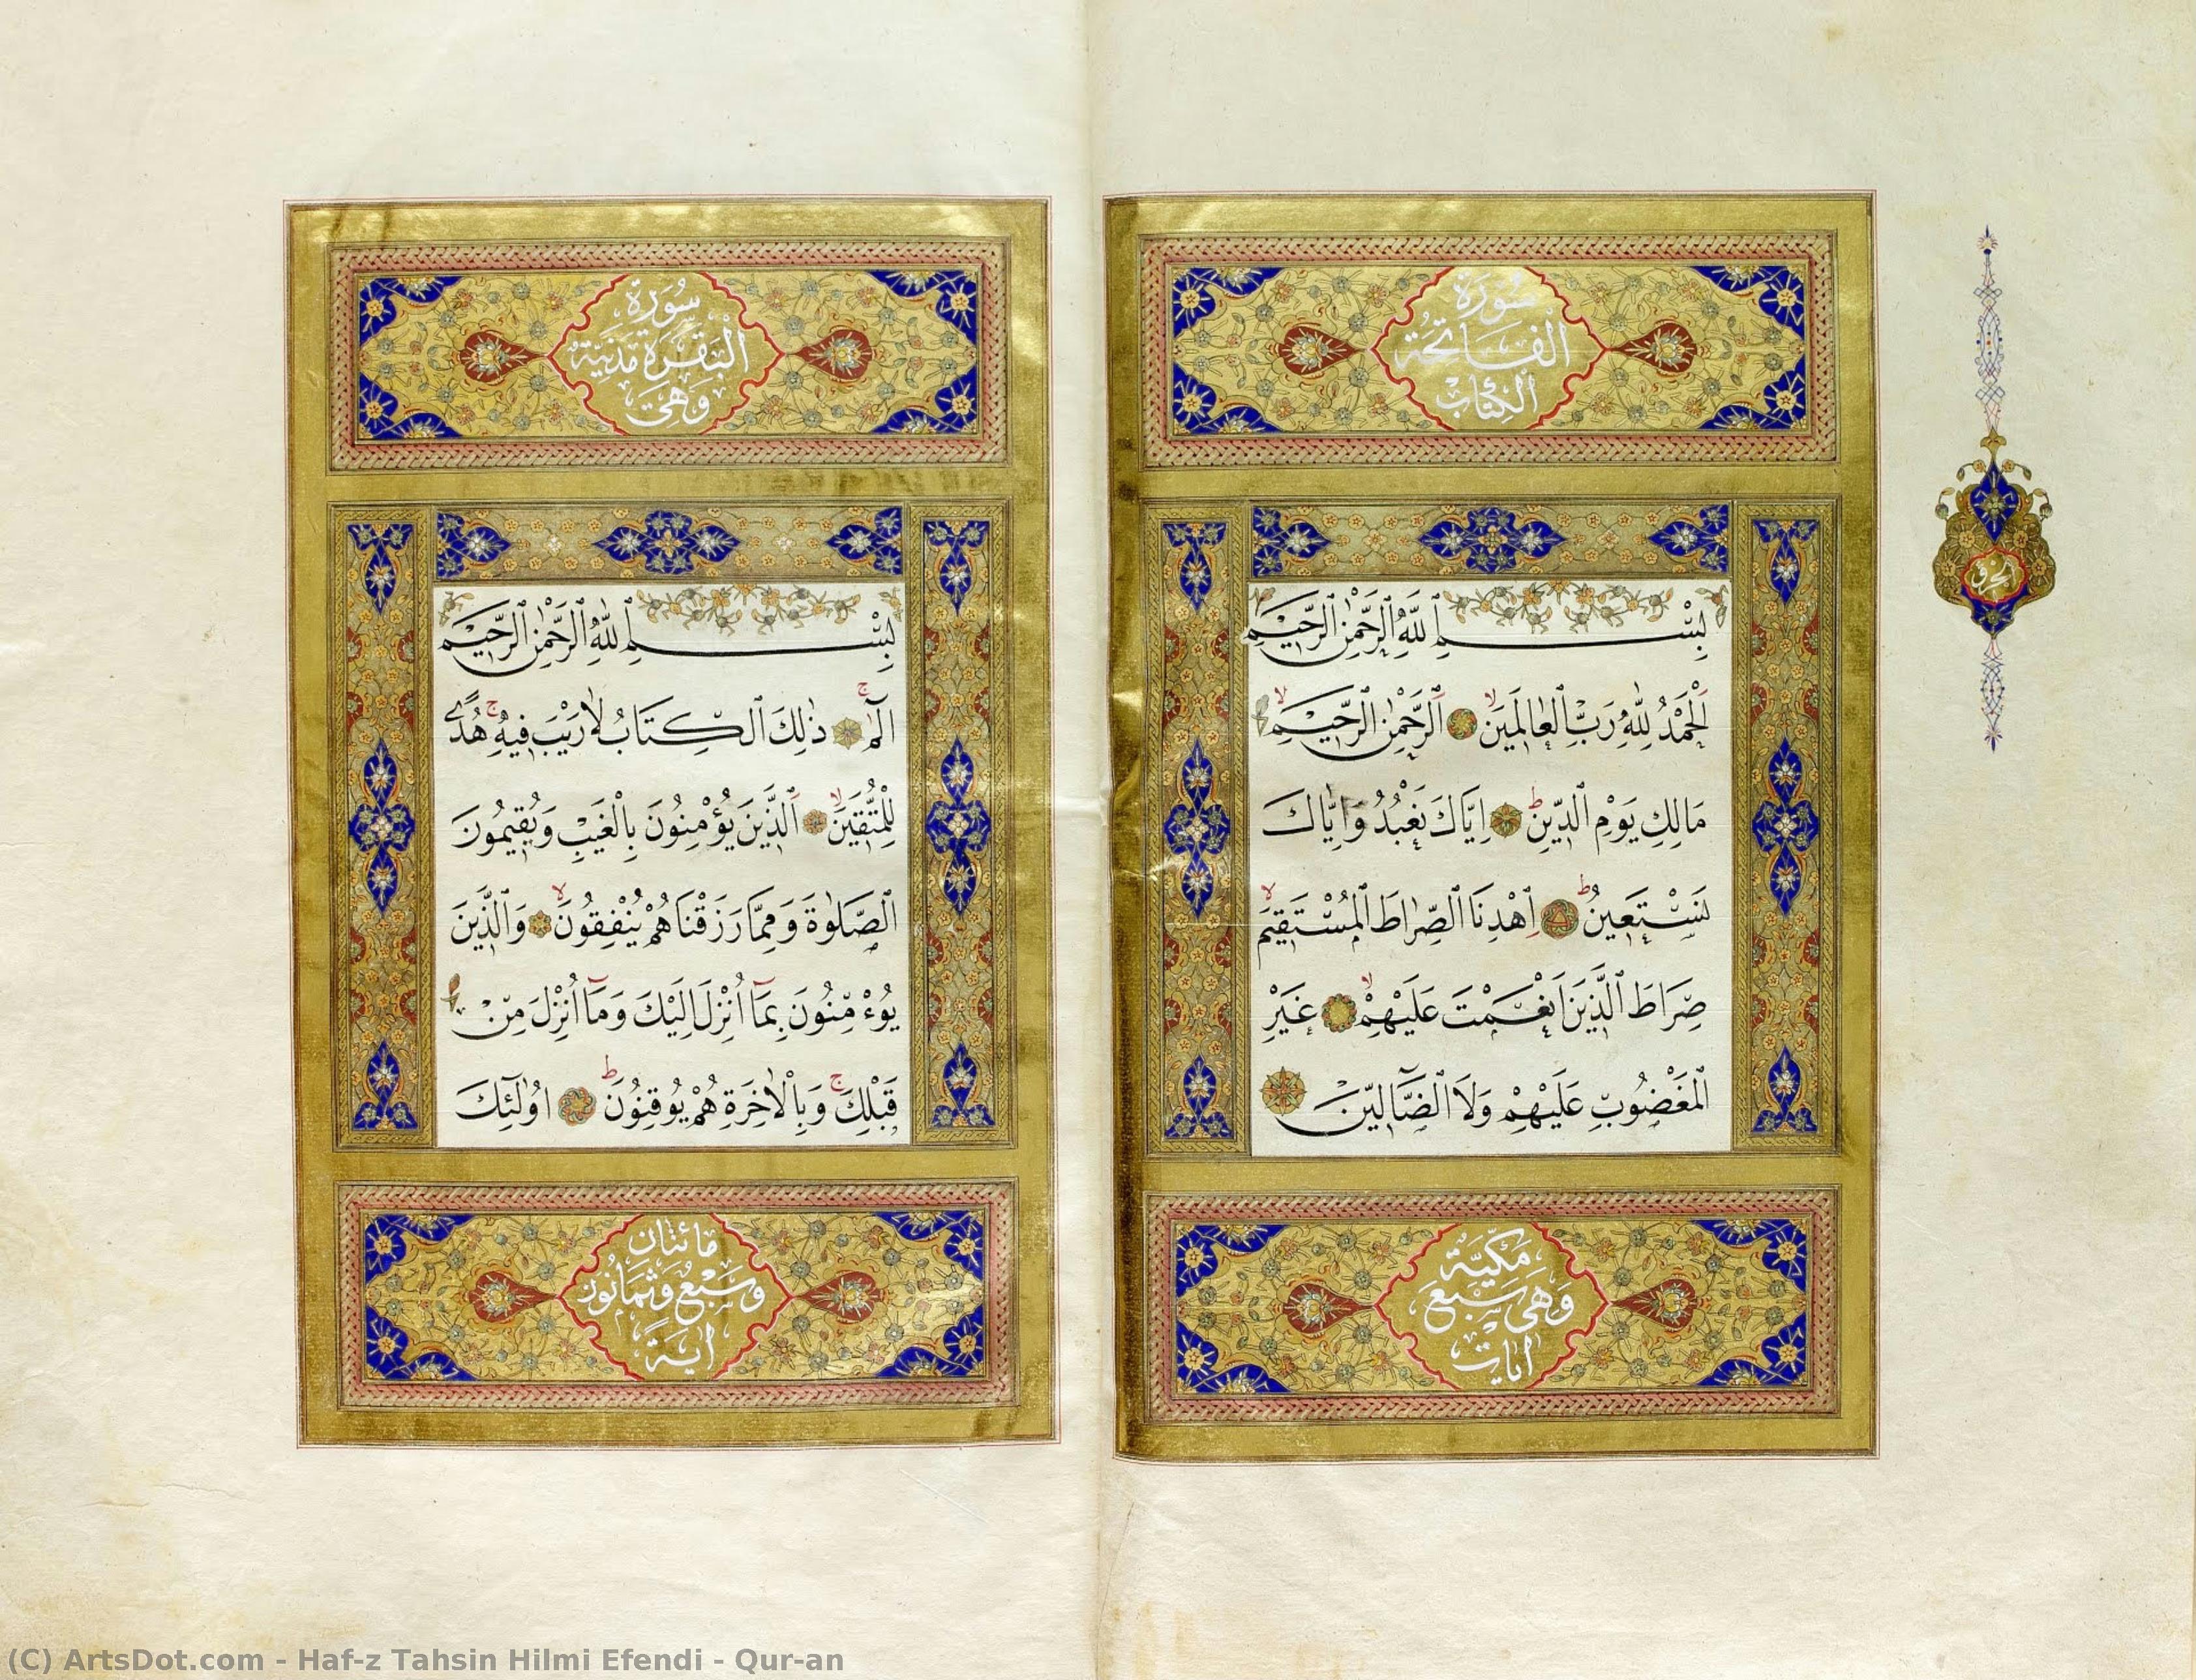 سُورَة
الفَاتِحَة
الكِتَابْ
بِسْمِ ٱللّٰهِ ٱلرَّحْمٰنِ ٱلرَّحِيمِ
اَلْحَمْدُ لِلّٰهِ رَبِّ ٱلْعَالَمِينَ ۙ اَلرَّحْمٰنِ ٱلرَّحِيمِ ۙ
مَالِكِ يَوْمِ ٱلدِّينِ ۜ اِيَّاكَ نَعْبُدُ وَاِيَّاكَ
نَسْتَعِينُ ۜ اِهْدِنَا ٱلصِّرَاطَ ٱلْمُسْتَقِيمَ ۙ
صِرَاطَ ٱلَّذِينَ اَنْعَمْتَ عَلَيْهِمْ ۙ غَيْرِ
ٱلْمَغْضُوبِ عَلَيْهِمْ وَلَا ٱلضَّٓالِّينَ
مَكِّيَّة
وَهِىَ سَبْعَ
اٰيَاتْ
سُورَة
البَقَرَة مَدَنِيَّةٌ
وَهِىَ
بِسْمِ ٱللّٰهِ ٱلرَّحْمٰنِ ٱلرَّحِيمِ
الٓمٓ ۚ ذٰلِكَ ٱلْكِتَابُ لَا رَيْبَ فِيهِ ۚ هُدًى
لِلْمُتَّقِينَ ۙ اَلَّذِينَ يُؤْمِنُونَ بِالْغَيْبِ وَيُقِيمُونَ
ٱلصَّلٰوةَ وَمِمَّا رَزَقْنَاهُمْ يُنْفِقُونَ ۙ وَٱلَّذِينَ
يُؤْمِنُونَ بِمَٓا اُنْزِلَ اِلَيْكَ وَمَٓا اُنْزِلَ مِنْ
قَبْلِكَ ۚ وَبِالْاٰخِرَةِ هُمْ يُوقِنُونَ ۜ اُولٰٓئِكَ
مائتان
وَسَبْعٌ وَثَمَانُونَ
اٰيَةً
(C) ArtsDot.com - Haf-z Tahsin Hilmi Efendi - Qur-an